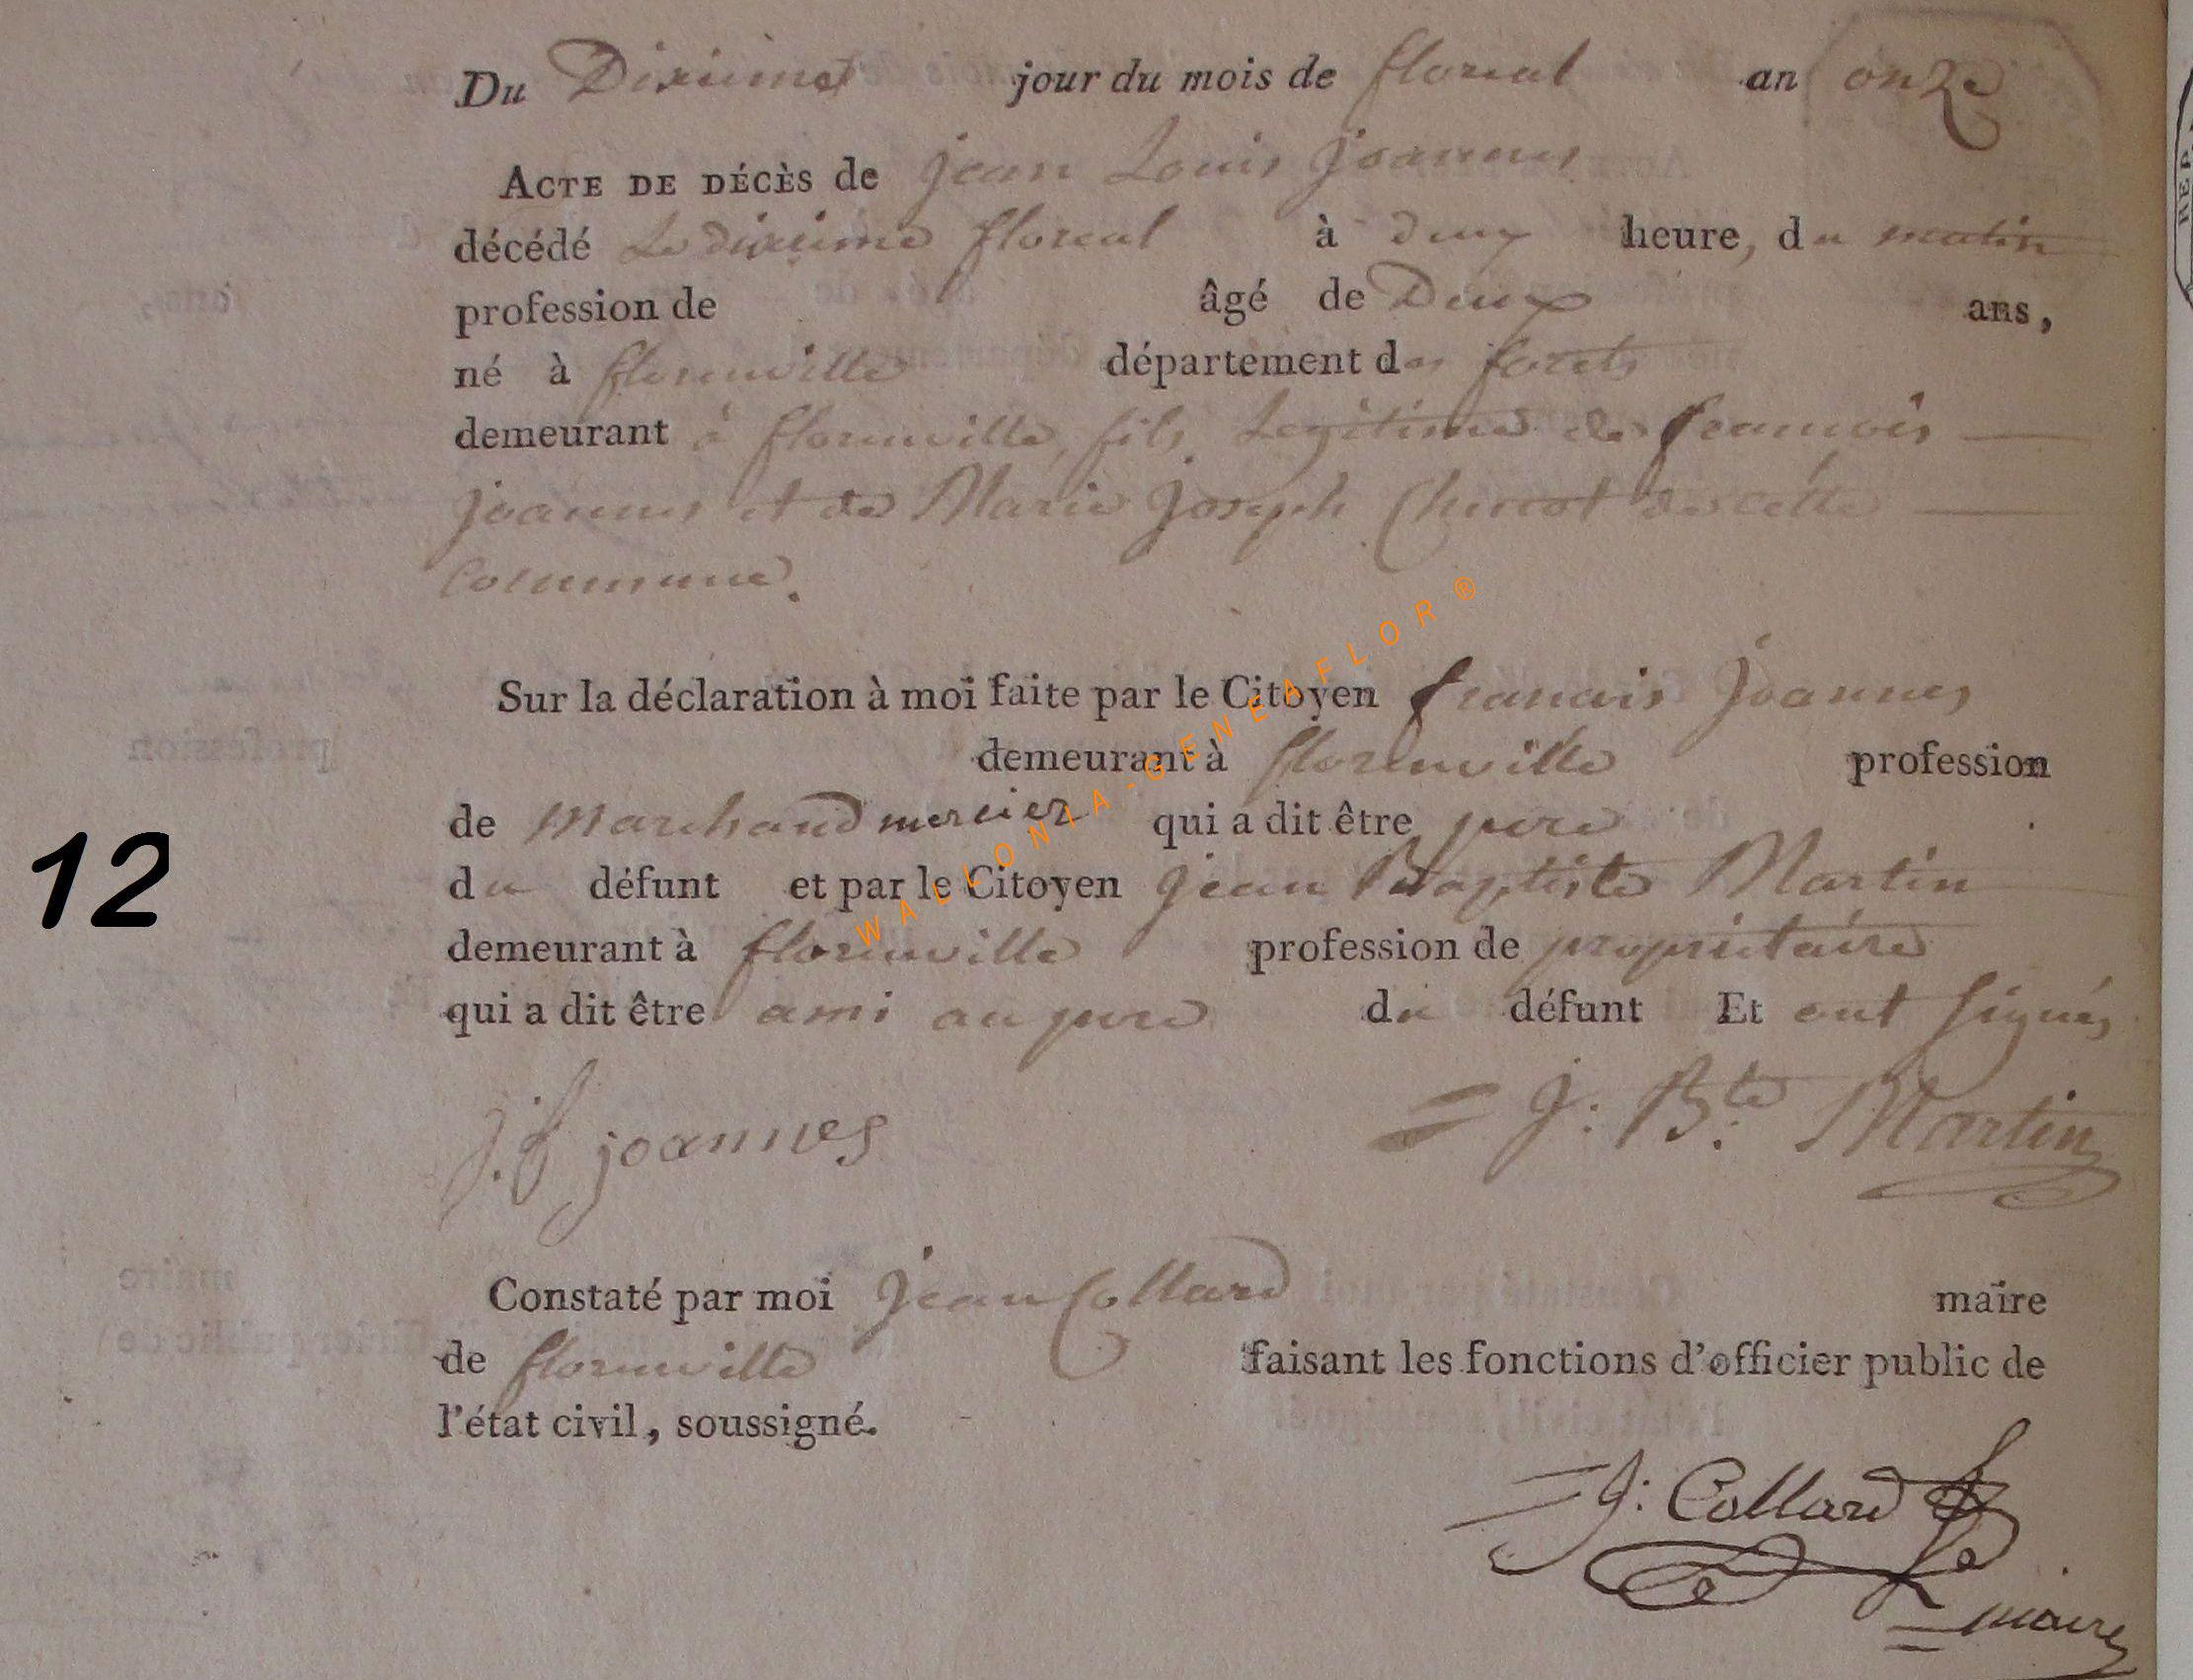 Du Dixieme jour du mois de floreal an onze
ACTE DE DÉCÈS de jean Louis joannes
décédé Le dixieme floreal à deux heure, du matin
profession de âgé de Deux ans,
né à florenville département des forets
demeurant à florenville, fils Legitime de francois
joannes et de Marie joseph de cette
Commune.
Sur la déclaration à moi faite par le Citoyen francois joannes
demeurant à florenville profession
de Marchand mercier qui a dit être pere
du défunt et par le Citoyen jean Baptiste Martin
demeurant à florenville profession de proprietaire
qui a dit être ami au pere du défunt Et ont signés
j. f joannes
J: B.te Martin
Constaté par moi jean Collard maire
de florenville faisant les fonctions d'officier public de
l'état civil, soussigné.
J: Collard
maire
12
WALLONIA-GENEAFLOR®